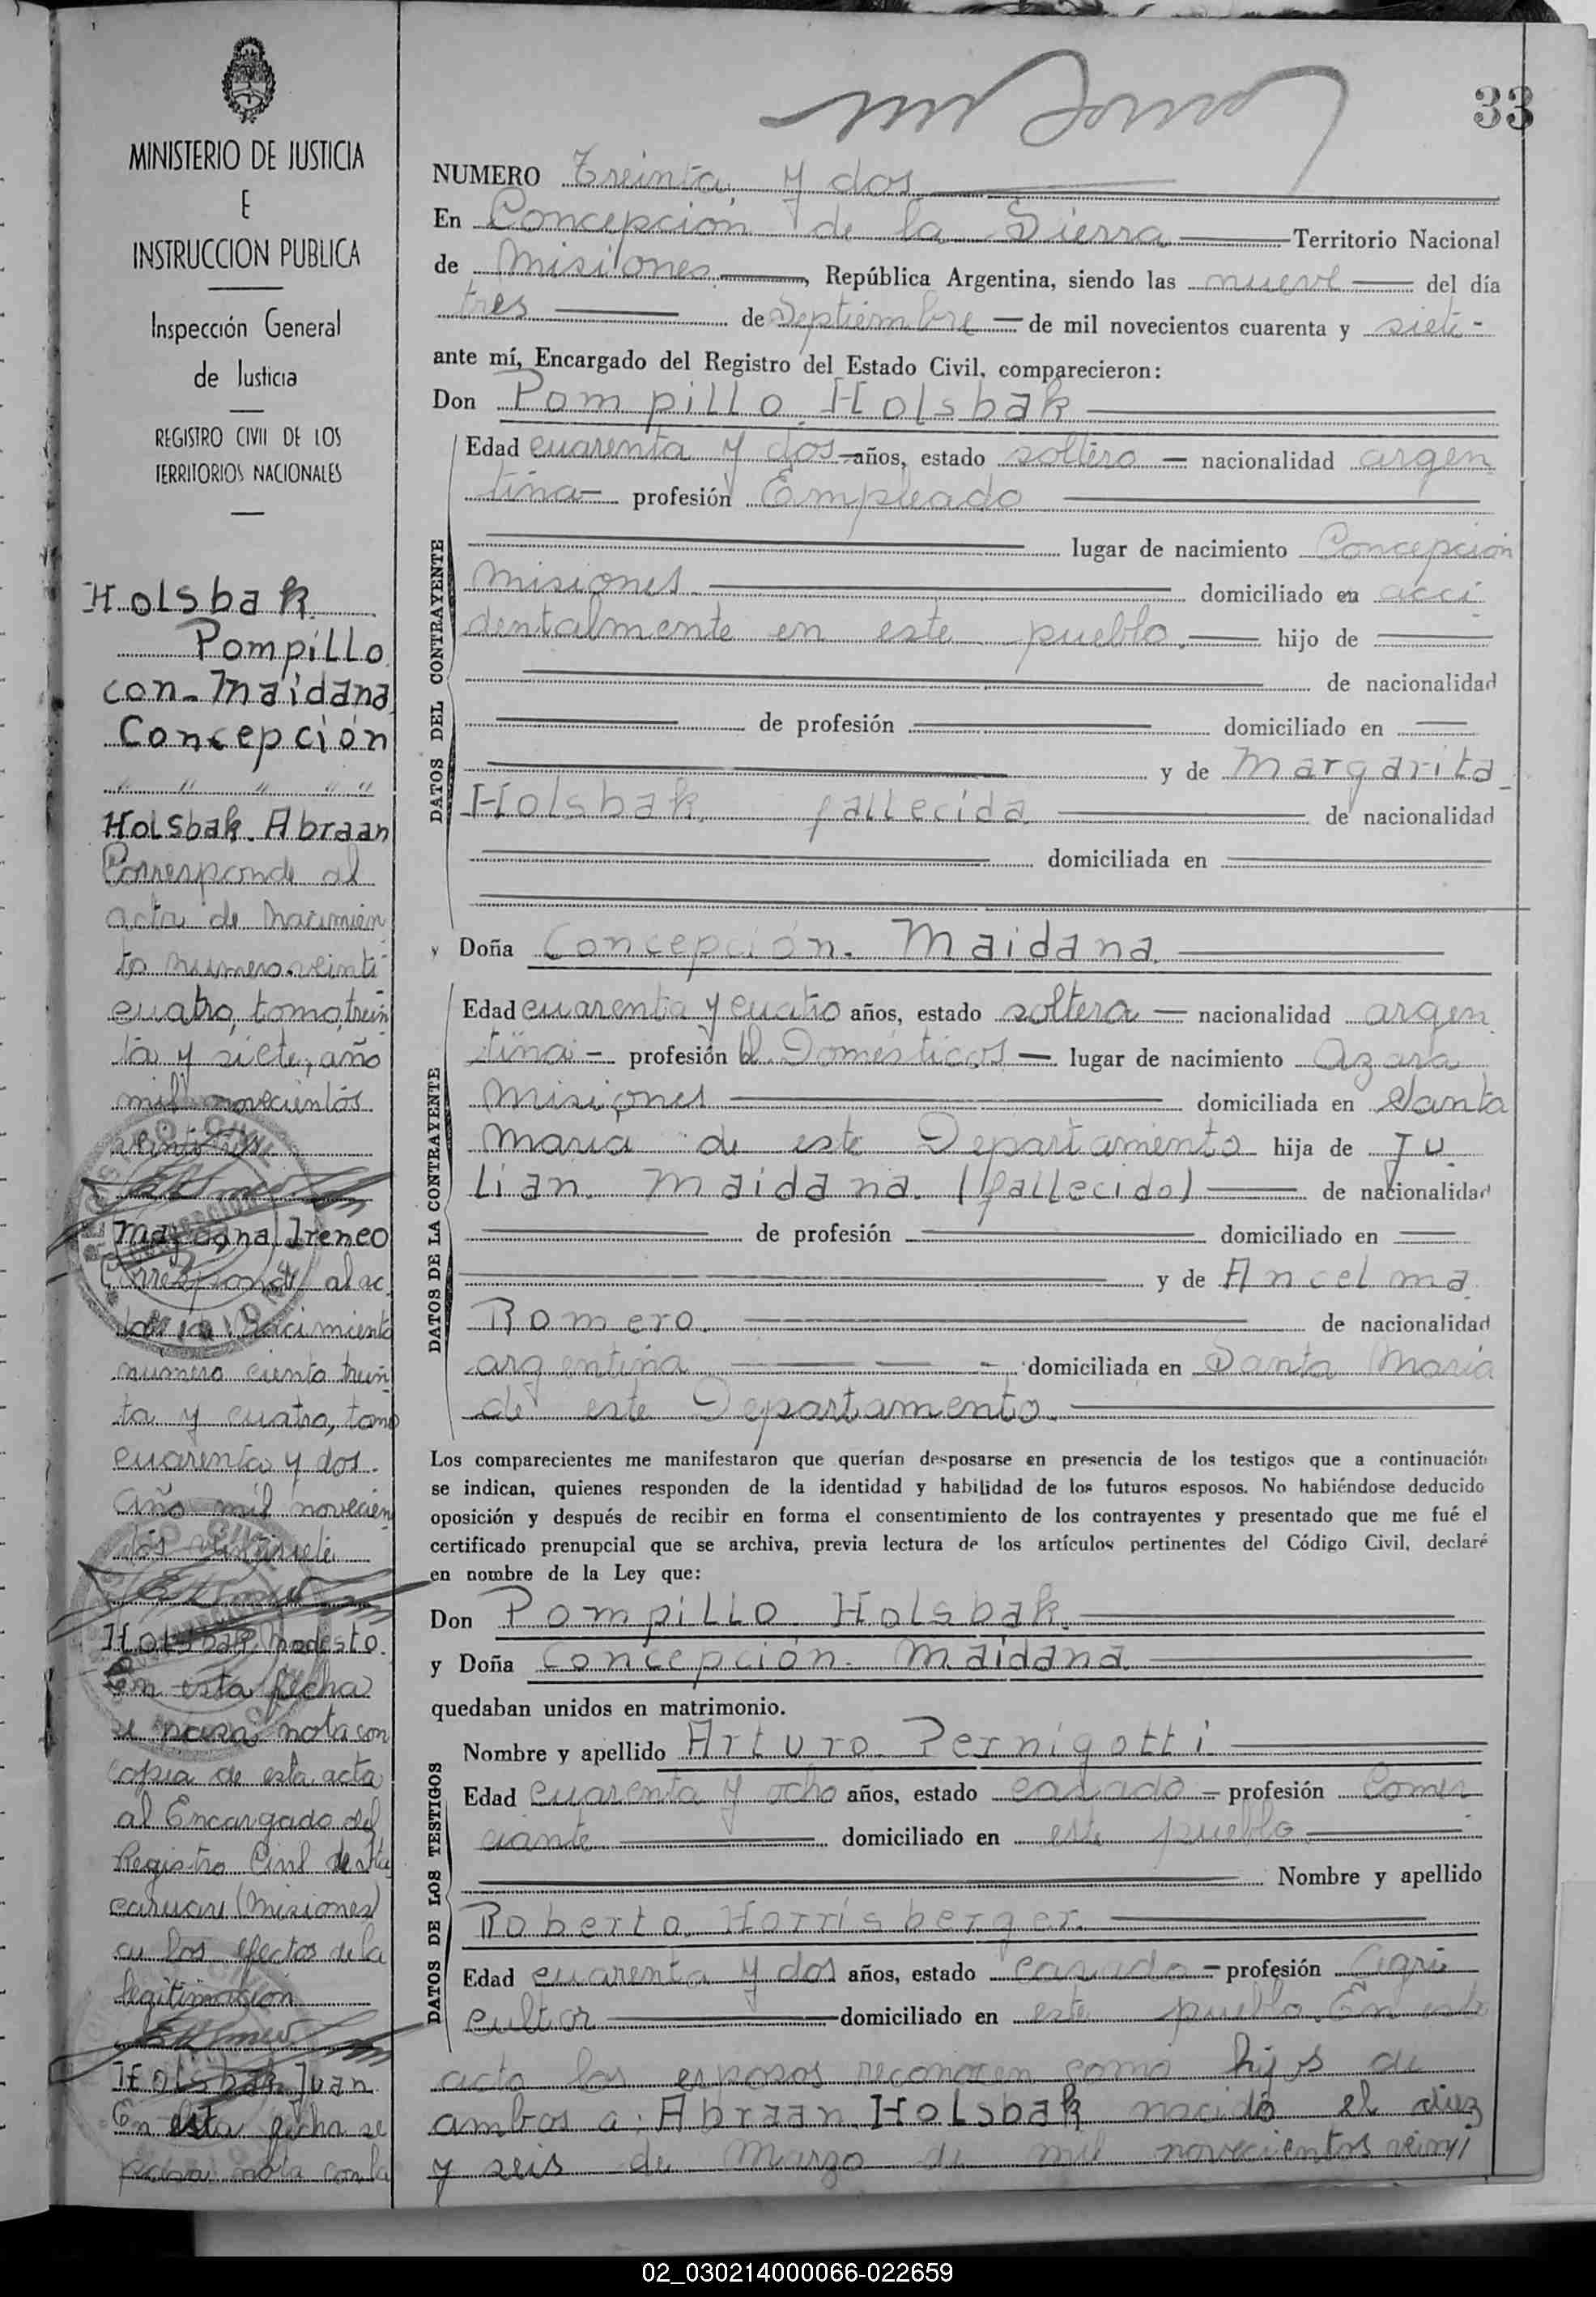 33
MINISTERIO DE JUSTICIA
E
INSTRUCCION PUBLICA
Inspección General
de Justicia
REGISTRO CIVIL DE LOS
TERRITORIOS NACIONALES
Holsbak
Pompillo
con-Maidana
Concepción
" " " " "
Holsbak. Abraan
Corresponde al
acta de nacimien
to numero veinti
cuatro, tomo, trein
ta y siete, año
mil novecientos
veintitres
Maidana Ireneo
Corresponde al ac
ta de nacimiento
número ciento trein
ta y cuatro, tomo
cuarenta y dos.
año mil novecien
tos
Holsbak Modesto.
En esta fecha
se pasa nota con
copia de esta acta
al Encargado del
Registro Civil de
(Misiones)
a los efectos de la
legitimacion
Holsbak Juan
En esta fecha se
pasa nota con la
NUMERO Treinta y dos
En Concepción de la Sierra Territorio Nacional
de Misiones, República Argentina, siendo las nueve del día
tres de Septiembre de mil novecientos cuarenta y siete-
ante mí, Encargado del Registro del Estado Civil, comparecieron:
Don Pompillo Holsbak
DATOS DEL CONTRAYENTE
Edad cuarenta y dos años, estado soltero nacionalidad argen
tina profesión Empleado
lugar de nacimiento Concepción
Misiones domiciliado en acci
dentalmente en este pueblo. hijo de
de nacionalidad
de profesión domiciliado en
y de Margarita
Holsbak. fallecida de nacionalidad
domiciliada en
y Doña Concepción. Maidana.
DATOS DE LA CONTRAYENTE
Edad cuarenta y cuatro años, estado soltera nacionalidad argen
tina profesión Q. Domésticos lugar de nacimiento Azara
Misiones domiciliada en Santa
Maria de este Departamento hija de Ju
lian. Maidana. (fallecido) de nacionalidad
de profesión domiciliado en
y de Ancelma
Romero. de nacionalidad
argentina domiciliada en Santa Maria
de este Departamento.
Los comparecientes me manifestaron que querían desposarse en presencia de los testigos que a continuación
se indican, quienes responden de la identidad y habilidad de los futuros esposos. No habiéndose deducido
oposición y después de recibir en forma el consentimiento de los contrayentes y presentado que me fué el
certificado prenupcial que se archiva, previa lectura de los artículos pertinentes del Código Civil, declaré
en nombre de la Ley que:
Don Pompillo Holsbak.
y Doña Concepción. Maidana.
quedaban unidos en matrimonio.
DATOS DE LOS TESTIGOS
Nombre y apellido Arturo. Pernigotti
Edad cuarenta y ocho años, estado casado profesión Comer
ciante domiciliado en este pueblo.
Nombre y apellido
Roberto Horrisberger.
Edad cuarenta y dos años, estado casado profesión Agri
cultor domiciliado en este pueblo. En este
acto los esposos reconocen como hijos de
ambos a: Abraan. Holsbak nacido el diez
y seis de Marzo de mil novecientos veinti
02_030214000066-022659